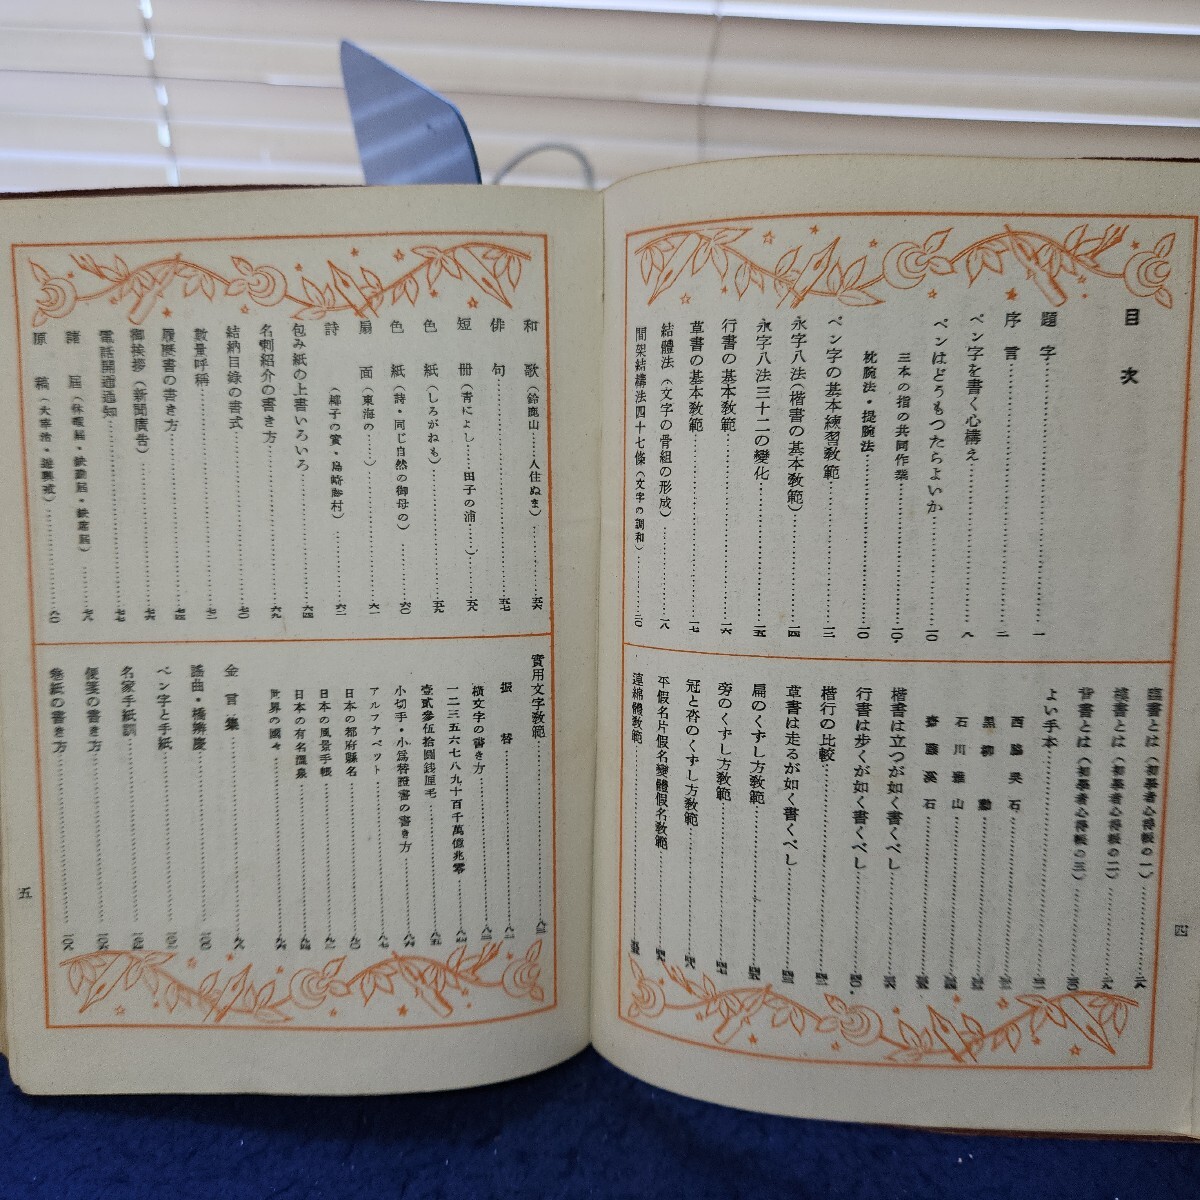 目次
題字……一
序言……二
ペン字を書く心構え……八
ペンはどうもつたらよいか……一〇
三本の指の共同作業……一〇
枕腕法・提腕法……一〇
ペン字の基本練習敎範……一二
永字八法(楷書の基本敎範)……一四
永字八法三十二の變化……一五
行書の基本敎範……一六
草書の基本敎範……一七
結體法(文字の骨組の形成)……一八
間架結構法四十七條(文字の調和)……二〇
臨書とは(初學者心得帳の一)……二八
模書とは(初學者心得帳の二)……二九
背書とは(初學者心得帳の三)……三〇
よい手本
西脇呉石
黒柳勳
石川雅山
齋藤溪石
楷書は立つが如く書くべし
行書は歩くが如く書くべし……四〇
楷行の比較
草書は走るが如く書くべし
扁のくずし方敎範
旁のくずし方敎範……四七
冠と沓のくずし方敎範……四八
平假名片假名變體假名敎範
連綿體敎範
四
和歌(鈴鹿山……人住ぬま)……五六
俳句……五七
短冊(靑によし……田子の浦……)……五八
色紙(しろがねも)……五九
色紙(詩・同じ自然の御母の)……六〇
扇面(東海の……)……六一
詩(椰子の實・島崎藤村)……六二
包み紙の上書いろいろ……六四
名刺紹介の書き方……六九
結納目錄の書式……七〇
數量呼稱……七二
履歷書の書き方……七四
御挨拶(新聞廣告)……七六
電話開通通知……七七
諸屆(休暇屆・缺勤屆・缺席屆)……七八
原稿(太宰治・……)……八〇
實用文字敎範
振替……八二
橫文字の書き方
一二三五六七八九十百千萬億兆零……八四
壹貳參伍拾圓錢厘毛……八五
小切手・小爲替證書の書き方……八六
アルファベット……八七
日本の都府縣名……九〇
日本の風景手帳
日本の有名溫泉……九四
世界の國々……九六
金言集……九八
謠曲・橋辨慶……一〇〇
ペン字と手紙
名家手紙訓……一〇四
便箋の書き方……一〇六
卷紙の書き方……一〇八
五